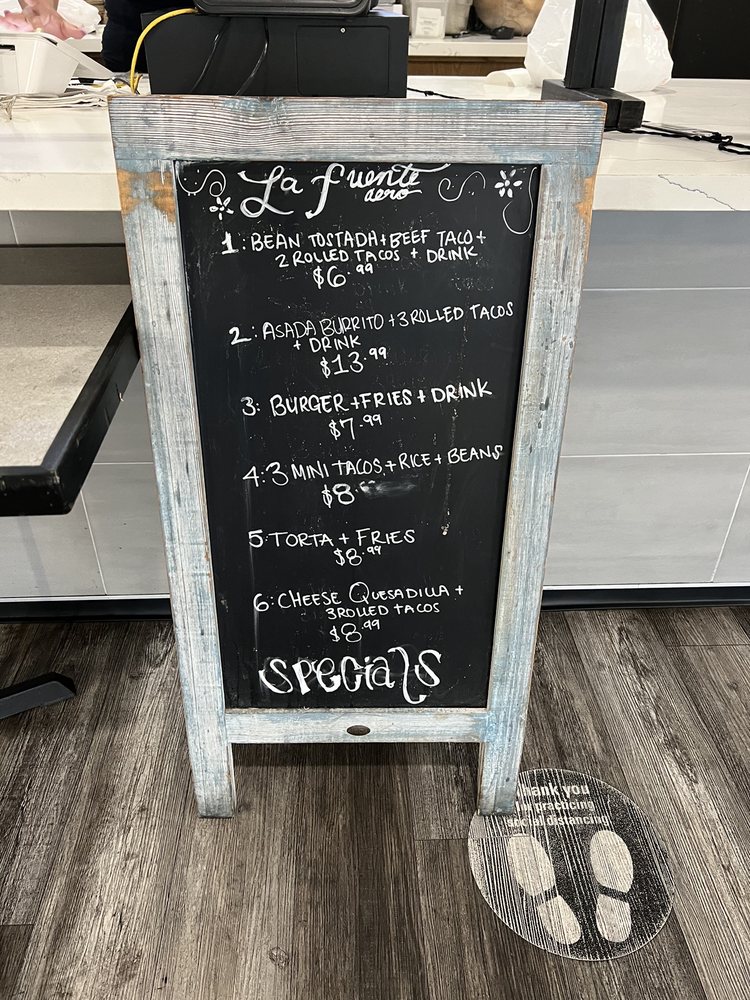 La Fuente
aero
1: BEAN TOSTADA + BEEF TACO +
2 ROLLED TACOS + DRINK
$6.99
2: ASADA BURRITO + 3 ROLLED TACOS
+ DRINK
$13.99
3: BURGER + FRIES + DRINK
$7.99
4: 3 MINI TACOS + RICE + BEANS
$8
5: TORTA + FRIES
$8.99
6: CHEESE QUESADILLA +
3 ROLLED TACOS
$8.99
SPECIALS
Thank you
for practicing
social distancing